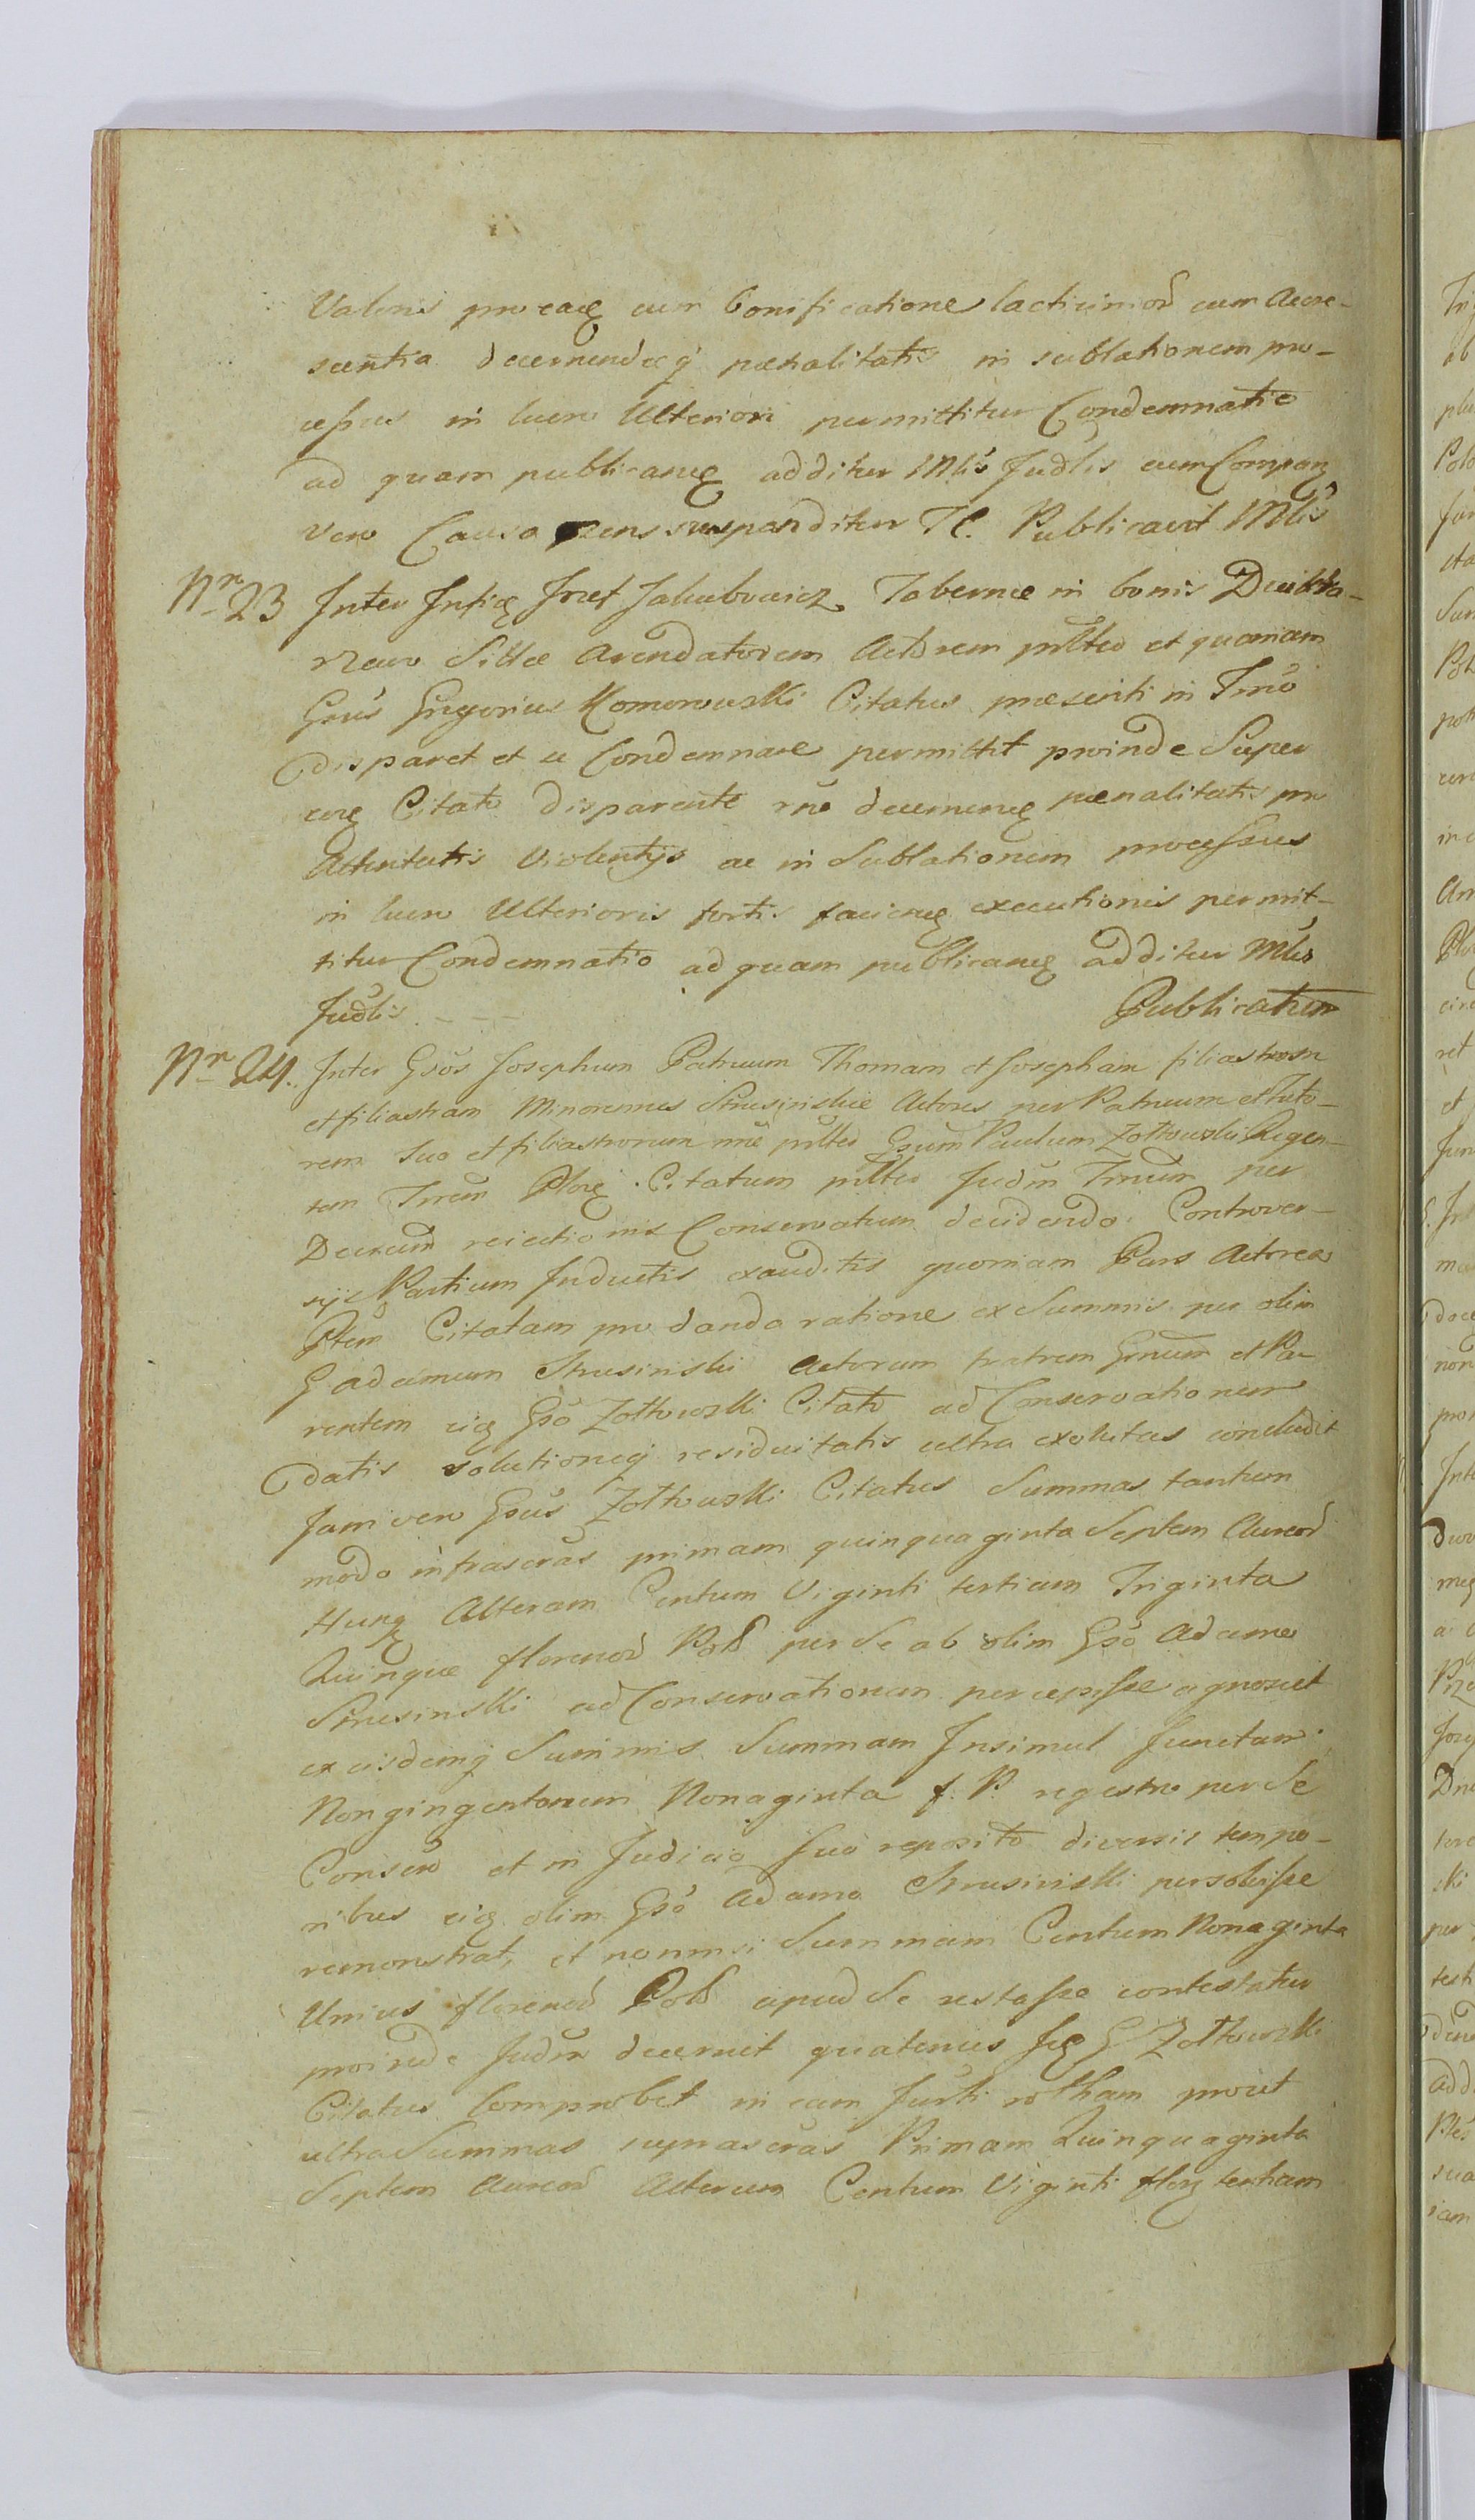 Valoris pro eadẽ cum bonificatione lacticiniorũ cum Accre-
scentia decernendæq́ pœnalitatis in sublationem pro-
cessus in lucro Ulteriori permittitur Condemnatio
ad quam publicandẽ additur Mlis Judlis cum Comparẽ
vero Causa præns suspenditur Tl. Publicavit Mlis
Nr 23 Inter Infidẽ Josef Jakubowicz Tabernæ in bonis
Sittæ Arendatorem Actorem pnltes et quoniam
Gsus Gregorius Komorowski Citatus præsenti in Trno
disparet et se Condemnare permittit proinde Super
eoq Citato disparente rne decernenẽ pœnalitatis pro
Attentatis Violentijs ac in Sublationem processus
in lucro Ulterioris fortis faciendẽ executionis permit-
titur Condemnatio ad quam publicandẽ additur Mlis
Judlis. - - - Publicatum
Nr 24. Inter Gsos Josephum Patruum Thomam et Josepham filiastrum
et filiastram Minorennes Strusinskie Actores per Patruum et Tuto-
rem suo et filiastrorum nne pnltes Gsum Paulum Zołtowski Regen-
tem Trrem Citatum pnltes Judm Trrum per
Decretum reiectionis Conservatum decidendo. Controver-
sijs Partium Inductis exauditis quoniam Pars Actorea
Ptem Citatam pro danda ratione ex Summis per olim
G Adamum Strusinski Actorum fratrem Grnum et Pa-
rentem eidẽ Gso Zołtowski Citato ad Conservationem
datis solutioneq́ residuitatis ultra exolutas concludit
Jam vero Gsus Zołtowski Citatus Summas tantum
modo infrascras primam quinquaginta Septem Aureorũ
Hungẽ Alteram Centum Viginti tertiam Triginta
Quinque florenorũ Poll per Se ab olim Gso Adamo
Strusinski ad Conservationem percepisse agnoscit
ex eisdemq́ Summis Summam Insimul Junctam
Nongingentorum Nonaginta f. P. regestro per Se
Conscro et in Judicio suo reposito diversis tempo-
ribus eidẽ olim Gso Adamo Strusinski persolvisse
remonstrat, et nonnisi Summam Centum Nonaginta
Unius florenorũ Poll apud Se restasse contestatur
proinde Judm decernit quatenus Idẽ G Zołtowski
Citatus Comprobet in eam Jurti rotham prout
ultra Summas suprascras Primam Quinquaginta
Septem Aureorũ Alteram Centum Viginti florẽ tertiam